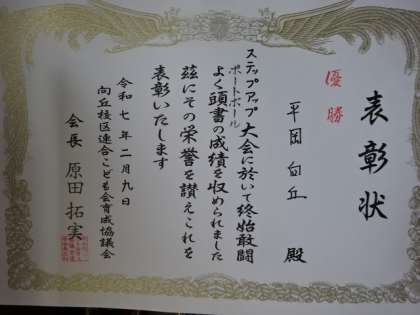 表彰状
優勝
平岡向丘 殿
ステップアップ
ポートボール
大会に於いて終始敢闘
よく頭書の成績を収められました
茲にその栄誉を讃えこれを
表彰いたします
令和七年二月九日
向丘校区連合こども会育成協議会
会長 原田拓実